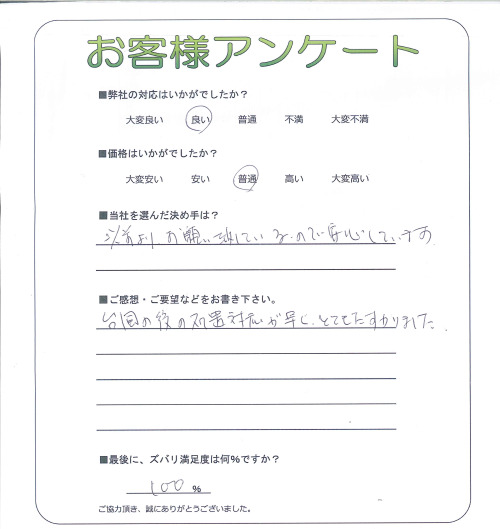 お客様アンケート
■弊社の対応はいかがでしたか？
大変良い 良い 普通 不満 大変不満
■価格はいかがでしたか？
大変安い 安い 普通 高い 大変高い
■当社を選んだ決め手は？
以前より、お願い致しているので安心しています
■ご感想・ご要望などをお書き下さい。
台風の後の処置対応が早く、とてもたすかりました
■最後に、ズバリ満足度は何%ですか？
100 %
ご協力頂き、誠にありがとうございました。